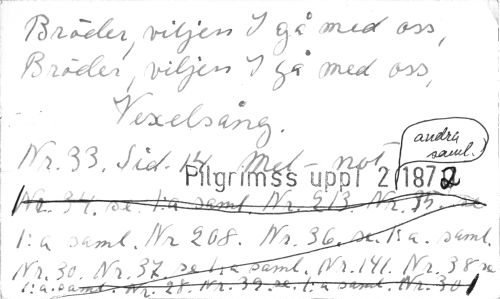 Bröder, viljen I gå med oss,
Bröder, viljen I gå med oss,
Vexelsång.
andra
saml.
Nr. 33. Sid. 14. Mel-not
Pilgrimss uppl 2 1872
Nr. 34. se. 1:a saml. Nr. 213. Nr. 35. se
1:a saml. Nr 208. Nr. 36. se. 1:a. saml.
Nr. 30. Nr. 37. se 1:a saml. Nr. 141. Nr. 38 se
1:a. saml. Nr. 28. Nr. 39. se. 1:a saml. Nr. 30